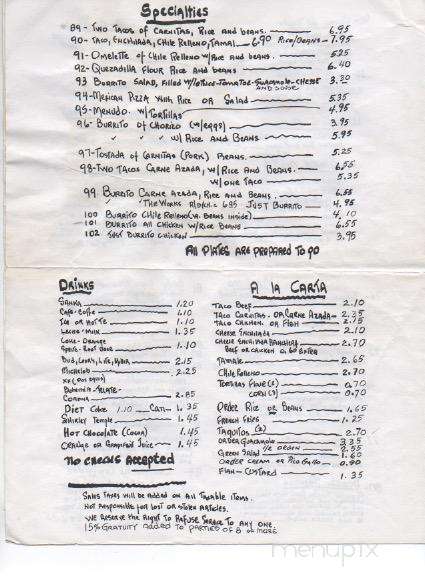 Specialties
89- Two Tacos of Carnitas, Rice and beans. 6.95
90- Taco, Enchilada, Chile Relleno, Tamal 6.90 Rice/Beans - 7.95
91- Omelette of Chile Relleno w/Rice and beans. 5.25
92- Quezadilla Flour Rice and beans 6.40
93 Burrito Salad, Filled w/Lettuce-Tomatoe-Guacamole-Cheese and Sauce 3.20
94- Mexican Pizza with Rice or Salad 5.35
95- Menudo w/Tortillas 4.95
96- Burrito of Chorizo (w/eggs) 3.95
" " " w/Rice and Beans 5.95
97- Tostada of Carnitas (Pork) Beans. 5.25
98- Two Tacos Carne Azada, w/Rice and Beans. 6.55
w/one Taco 5.35
99 Burrito Carne Azada, Rice and Beans. 6.55
" The Works 6.85 Just Burrito 4.95
100 Burrito Chile Relleno (w. Beans inside) 4.10
101 Burrito All Chicken w/Rice Beans 6.55
102 Just Burrito Chicken 3.95
All Plates are prepared to go
Drinks
Sanka 1.20
Cafe-Coffee 1.10
Ice or Hot Te 1.10
Leche-Milk 1.35
Coke-Orange
Sprite-Root Beer 1.10
Bud, Coors, Lite, 2.15
Michelob 2.25
XX (Dos Equis)
Bohemia-
Corona 2.85
Diet Coke 1.10 Can 1.35
Shirley Temple 1.45
Hot Chocolate (Cocoa) 1.45
Orange or Grapefruit Juice 1.45
No Checks Accepted
A la Carta
Taco Beef 2.10
Taco Carnitas - or Carne Azada 2.35
Taco Chicken or Fish 2.75
Cheese Enchilada 2.10
Cheese Enchilada Ranchera 2.70
Beef or Chicken 0.60 Extra
Tamale 2.65
Chile Relleno 2.70
Tortillas Flour (2) 0.70
Corn (3) 0.70
Order Rice or Beans 1.65
French Fries 1.25
Taquitos (3) 2.70
Order Guacamole 3.35
1/2 Order 2.55
Green Salad 1.60
Order Cream or Pico Gallo 0.90
Flan-Custard 1.35
Sales Taxes will be added on all taxable items.
Not Responsible for lost or stolen articles.
We Reserve the Right to Refuse Service to any one.
15% Gratuity added to parties of 8 or more
menupix